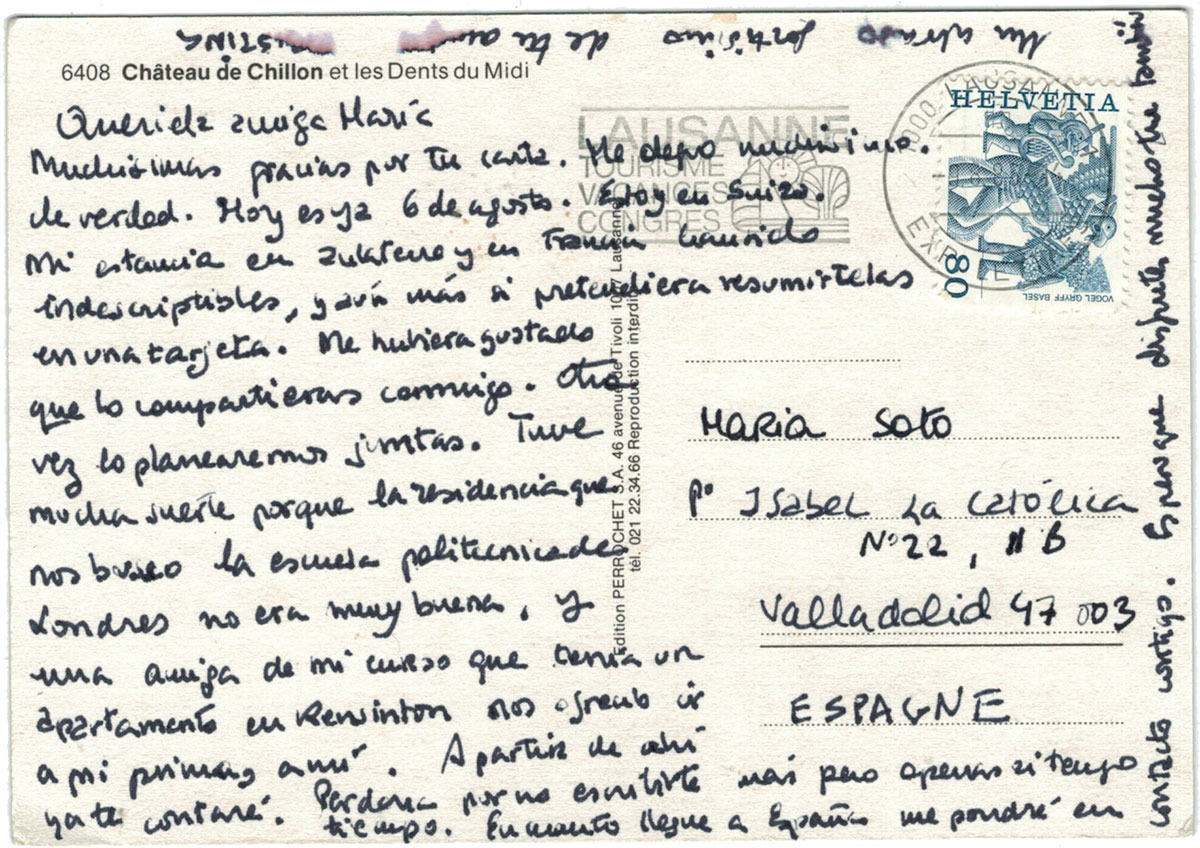 6408 Château de Chillon et les Dents du Midi
Querida amiga María
Muchísimas gracias por tu carta. Me alegro muchísimo.
de verdad. Hoy es ya 6 de agosto. Estoy en Suiza.
Mi estancia en y en Francia han sido
indescriptibles, y aún más si pretendiera resumirtelas
en una tarjeta. Me hubiera gustado
que lo compartieras conmigo. Otra
vez lo planearemos juntas. Tuve
mucha suerte porque la residencia que
nos busco la escuela politecnica de
Londres no era muy buena, y
una amiga de mi curso que tenía un
apartamento en Kensinton nos ofrecio ir
a mi prima y a mí. A partir de ahí
ya te contaré. Perdona por no escribirte más pero apenas si tengo
tiempo. En cuanto llegue a España me pondré en
contacto contigo. Espero que disfrutes mucho tu también
Un abrazo fortísimo de tu
LAUSANNE
TOURISME
VACANCES
CONGRES
1000 LAUSANNE
HELVETIA
80
VOGEL GRYFF BASEL
Edition PERROCHET S.A. 46 avenue de Tivoli 1007 Lausanne
tél. 021 22.34.66 Reproduction interdite
MARIA SOTO
Pº ISABEL LA CATÓLICA
Nº 22, B
Valladolid 47003
ESPAGNE